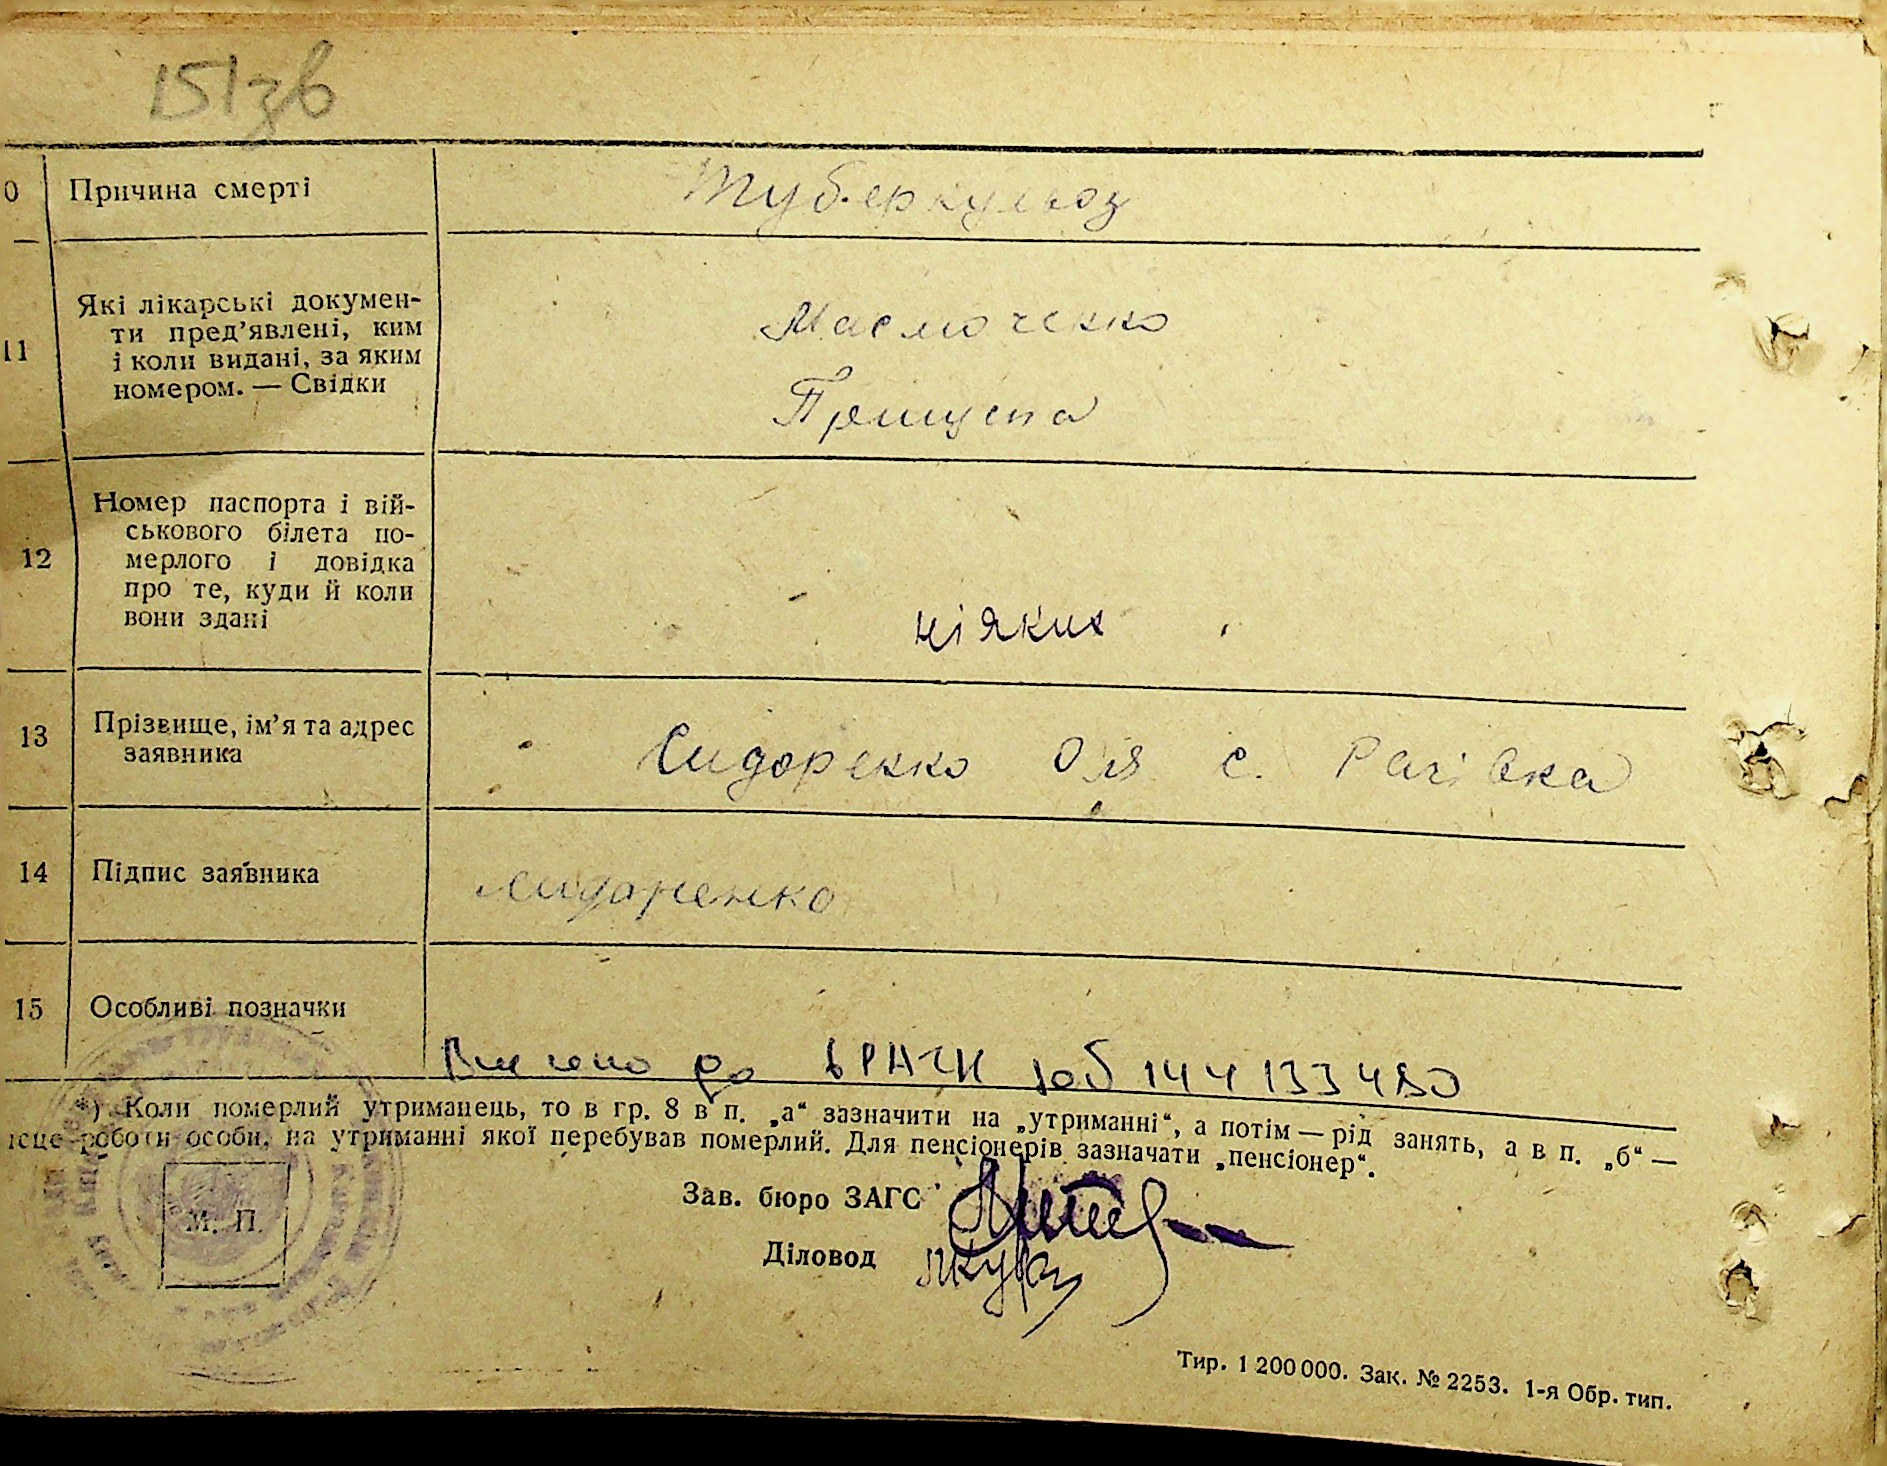 151зв
10 Причина смерті Туберкульоз
11 Які лікарські докумен-
ти пред’явлені, ким
і коли видані, за яким
номером. — Свідки
Масюченко
Прищепа
12 Номер паспорта і вій-
ськового білета по-
мерлого і довідка
про те, куди й коли
вони здані
ніяких
13 Прізвище, ім’я та адрес
заявника
Сидоренко Оля с. Рачівка
14 Підпис заявника Сидоренко
15 Особливі позначки
Внесено до
*) Коли померлий утриманець, то в гр. 8 в п. „а“ зазначити на „утриманні“, а потім — рід занять, а в п. „б“ —
місце роботи особи, на утриманні якої перебував померлий. Для пенсіонерів зазначати „пенсіонер“.
М. П.
Зав. бюро ЗАГС
Діловод
Тир. 1 200 000. Зак. № 2253. 1-я Обр. тип.